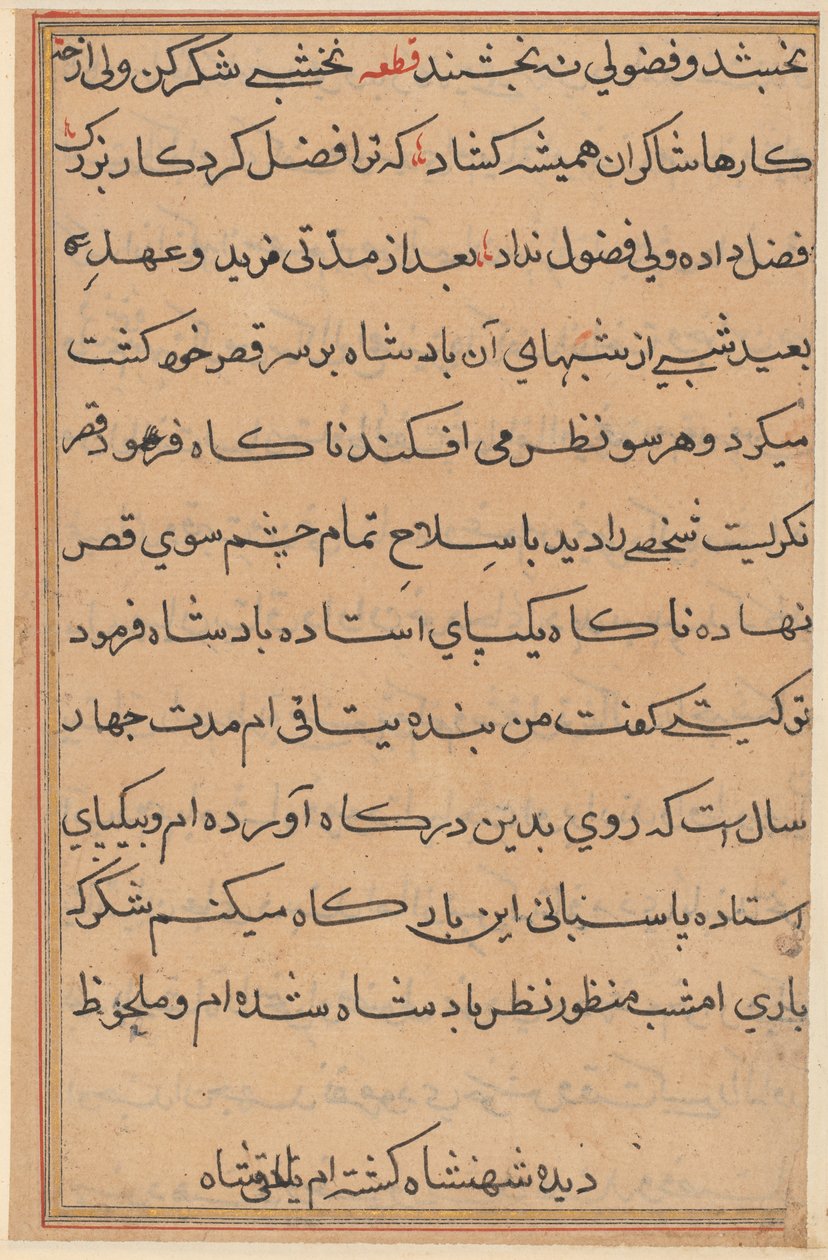 نخسبند و فضولي نه بخشند قطعه نخشبے شکر کن ولی از خدا
کارها شاکران همیشه کشاد که ترا فضل کرد کار بزرک
فضل داده ولي فضول نداد بعد از مدّتی مرید و عهدِ
بعید شبے از شبهاي آن بادشاه بر سر قصر خود کشت
میکرد و هر سو نظر می افکند ناکاه فرمود قصر
نکریست شخصے را دید با سِلاحِ تمام چشم سوي قصر
نهاده ناکاه یکپاي استاده بادشاه فرمود
تو کیستے کفت من بنده یتاقی ام مدت چهار
سال است که روي بدین درکاه آورده ام و بیکپاي
استاده پاسبانی این بارکاه میکنم شکر که
باري امشب منظور نظر بادشاه شده ام و ملحوظ
دیده شهنشاه کشته ام شاه